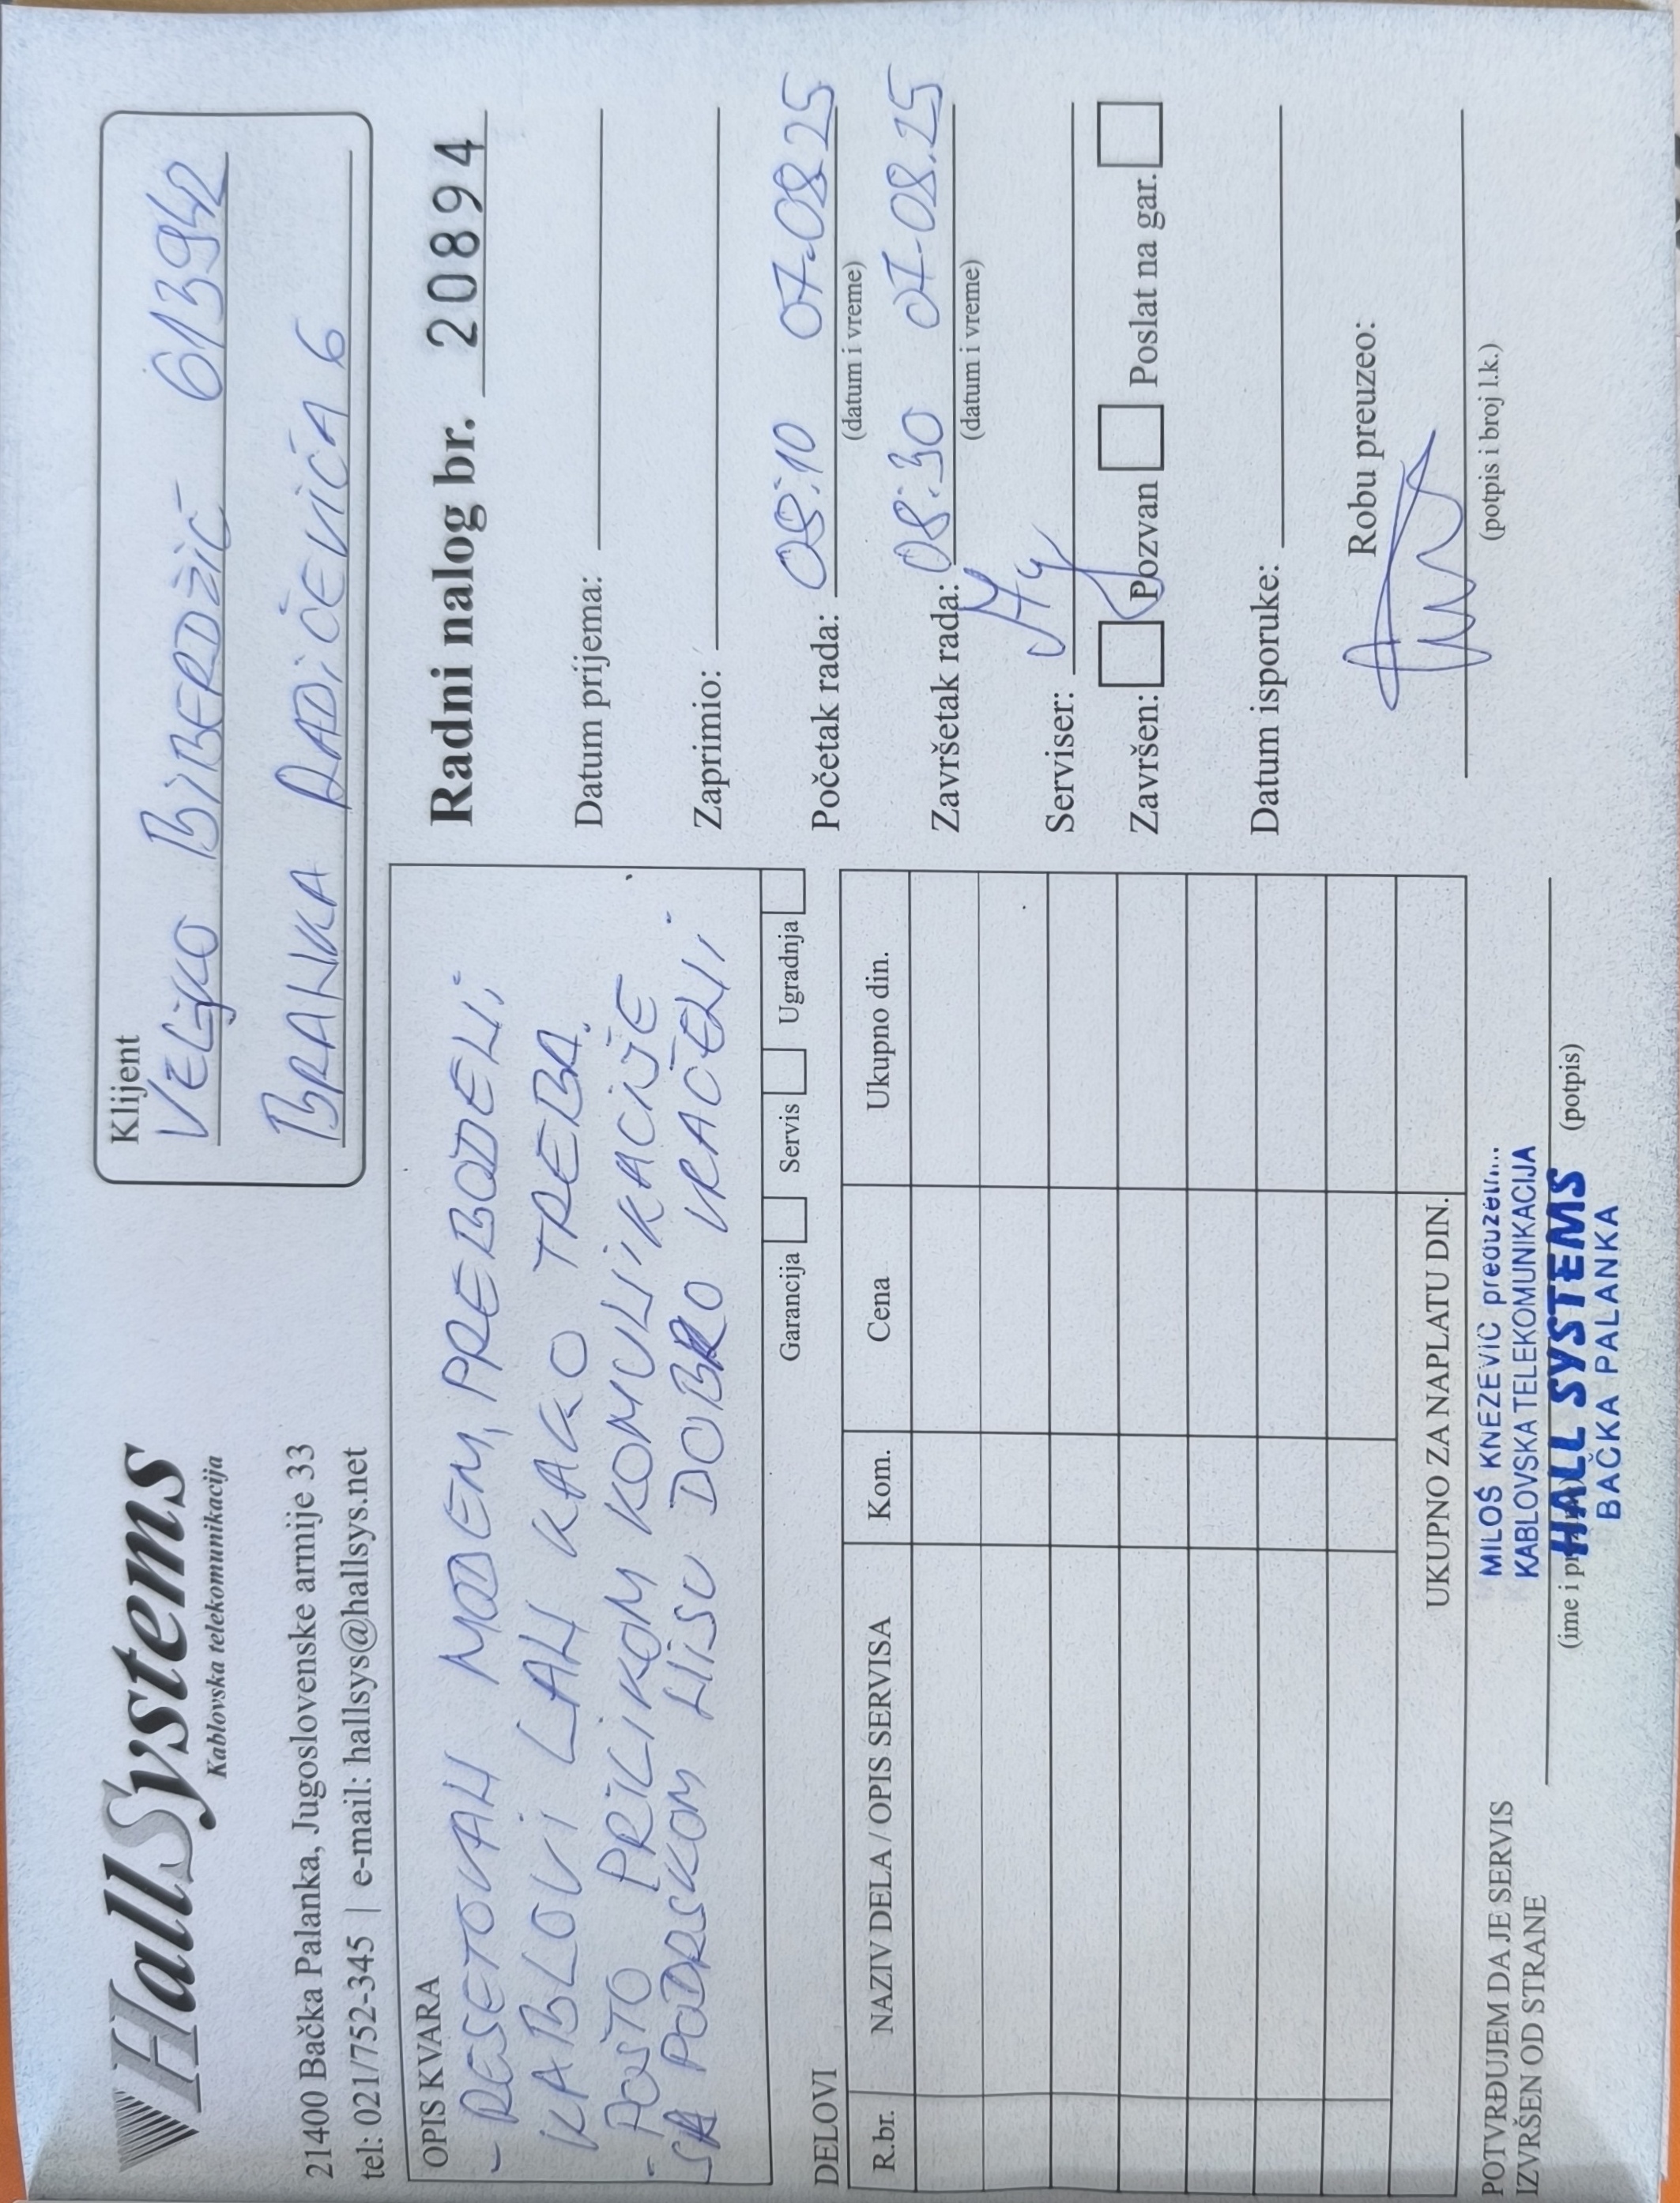 HallSystems
Kablovska telekomunikacija
21400 Bačka Palanka, Jugoslovenske armije 33
tel: 021/752-345 | e-mail: hallsys@hallsys.net
Klijent
VELJKO BIBERDŽIĆ 613942
BRANKA RADIČEVIĆA 6
OPIS KVARA
- RESETOVAN MODEM, PREBODENI
KABLOVI LAN KAKO TREBA.
- POŠTO PRILIKOM KOMUNIKACIJE
SA PODRSKOM NISU DOBRO VRAĆENI.
Garancija Servis Ugradnja
Radni nalog br. 20894
Datum prijema:
Zaprimio:
Početak rada: 08:10 07.08.25
(datum i vreme)
Završetak rada: 08:30 07.08.25
(datum i vreme)
Serviser:
Završen: Pozvan Poslat na gar.
Datum isporuke:
Robu preuzeo:
(potpis i broj l.k.)
DELOVI
R.br. NAZIV DELA / OPIS SERVISA Kom. Cena Ukupno din.
UKUPNO ZA NAPLATU DIN.
POTVRĐUJEM DA JE SERVIS
IZVRŠEN OD STRANE
MILOŠ KNEZEVIĆ
KABLOVSKA TELEKOMUNIKACIJA
HALL SYSTEMS
BAČKA PALANKA
(ime i (potpis)